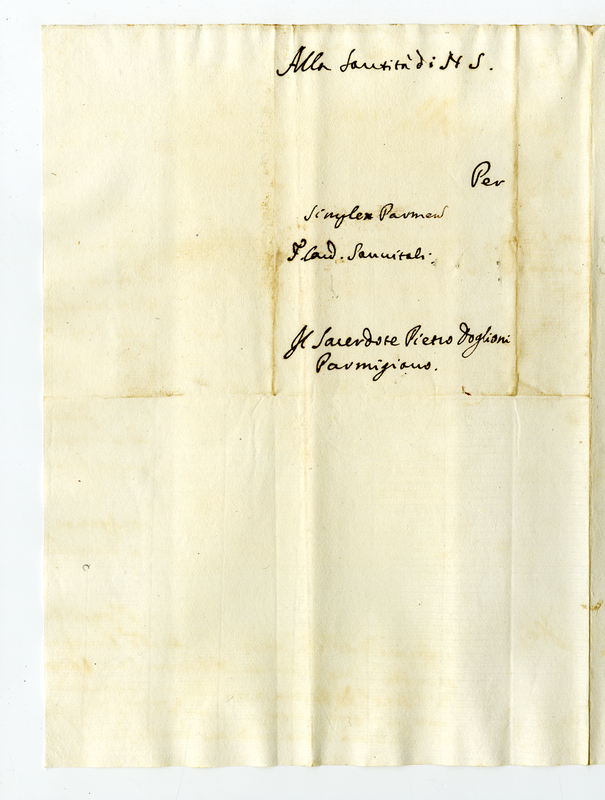 Alla Santità di N S.
Per
Simplex Parmen
F. Card. Sanvitali.
Il Sacerdote Pietro Doglioni
Parmigiano.